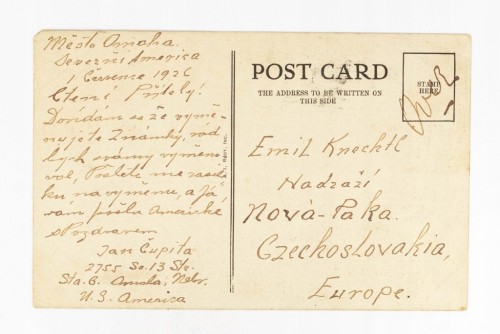 Město Omaha.
Severní America
1 Července 1926
Ctemí Přítely!
Dovídám se že vymě-
nujete Známky, rod
bych svámy vyměno
vol, Pošlete me zasil
ku na vyměnu, a Já
vám pošlu Amarické
sPozdravem
Jan Cupita
2755 So. 13 Str.
Sta. B. Omaha, Nebr.
U.S. America
POST CARD
THE ADDRESS TO BE WRITTEN ON
THIS SIDE
STAMP
HERE
Emil Knechtl
Nadraží
Nová-Paka.
Czechoslovakia,
Europe.